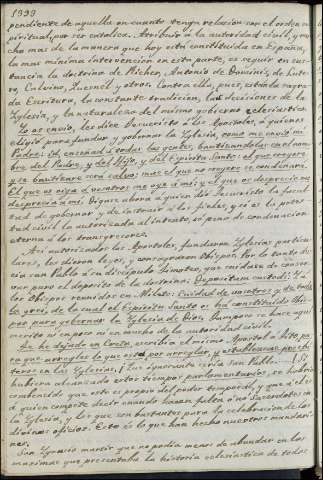 1399
pendiente de aquella en cuanto tenga relacion con el orden es-
piritual, por ser catolica. Atribuir a la autoridad civil, y mu-
cho mas de la manera que hoy está constituida en España,
la mas minima intervencion en esta parte, es seguir en sus-
tancia la doctrina de Richer, Antonio de Dominis, de Lute-
ro, Calvino, Quesnel y otros. Contra ella, pues, está la sagra-
da Escritura, la constante tradicion, las decisiones de la
Yglesia, y la naturaleza del mismo gobierno eclesiastico.
Yo os envio, les dice Jesucristo a los Apostoles, á quienes
eligió para fundar y gobernar la Yglesia, como me envió mi
Padre: id, enseñad á todas las gentes, bautizandolas en el nom-
bre del Padre, y del Hijo, y del Espiritu Santo: el que creyere
y se bautizare será salvo; mas el que no creyere se condenará.
El que os oiga á vosotros me oye á mi; y el que os desprecia me
desprecia á mi. Digase ahora á quien dió Jesucristo la facul-
tad de gobernar y de instruir á los fieles, y si es la potes-
tad civil la autorizada al intento, só pena de condenacion
eterna á los transgresores.
Asi autorizados los Apostoles, fundaron Yglesias particu-
lares, les dieron leyes, y consagraron Obispos. Por lo tanto de-
cia san Pablo á su discipulo Timoteo, que cuidara de conser-
var puro el deposito de la doctrina: Depositum custodi: Y á
los Obispos reunidos en Mileto: Cuidad de vosotros y de toda
la grei, de la cual el Espiritu Santo os ha constituido Obis-
pos para gobernar la Yglesia de Dios. Tampoco se hace aqui
escrito ni apoco ni en mucho de la autoridad civil.
Te he dejado en Creta, escribia el mismo Apostol á Tito, pa-
ra que arregles lo que está por arreglar, y establezcas presbi-
teros en las Yglesias. ¡Que oportuno seria San Pablo! Si
hubiera alcanzado estos tiempos parlamentarios, se habria
convencido que esto es propio del poder temporal, y que á él es
á quien compete decir cuando hacen falta ó no Sacerdotes en
la Yglesia, y los que son bastantes para la celebracion de los
divinos oficios. Esto es lo que han hecho nuestros mandari-
nes.
San Ygnacio martir que no podia menos de abundar en las
maximas que presentaba la historia eclesiastica de todos